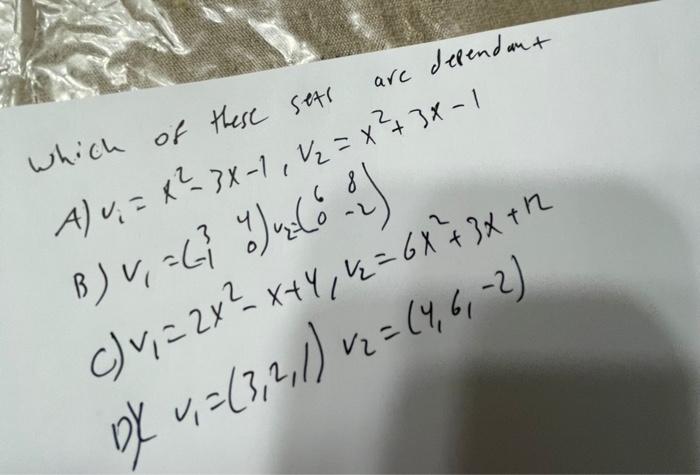 Which of these sets are dependant
A) v₁ = x² - 3x - 1, v₂ = x² + 3x - 1
B) v₁ = (3 4 -1 0) v₂ = (6 8 0 -2)
C) v₁ = 2x² - x + 4, v₂ = 6x² + 3x + 12
D) v₁ = (3,2,1) v₂ = (4,6,-2)